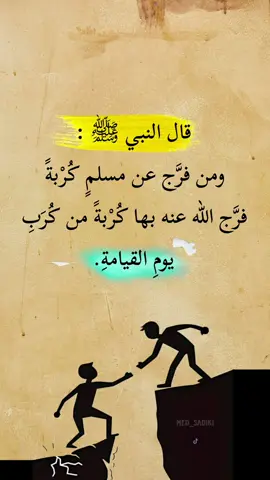 قال النبي ﷺ :
ومن فرَّج عن مسلمٍ كُرْبةً
فرَّج الله عنه بها كُرْبةً من كُرَبِ
يومِ القيامةِ.
MED_SADIKI